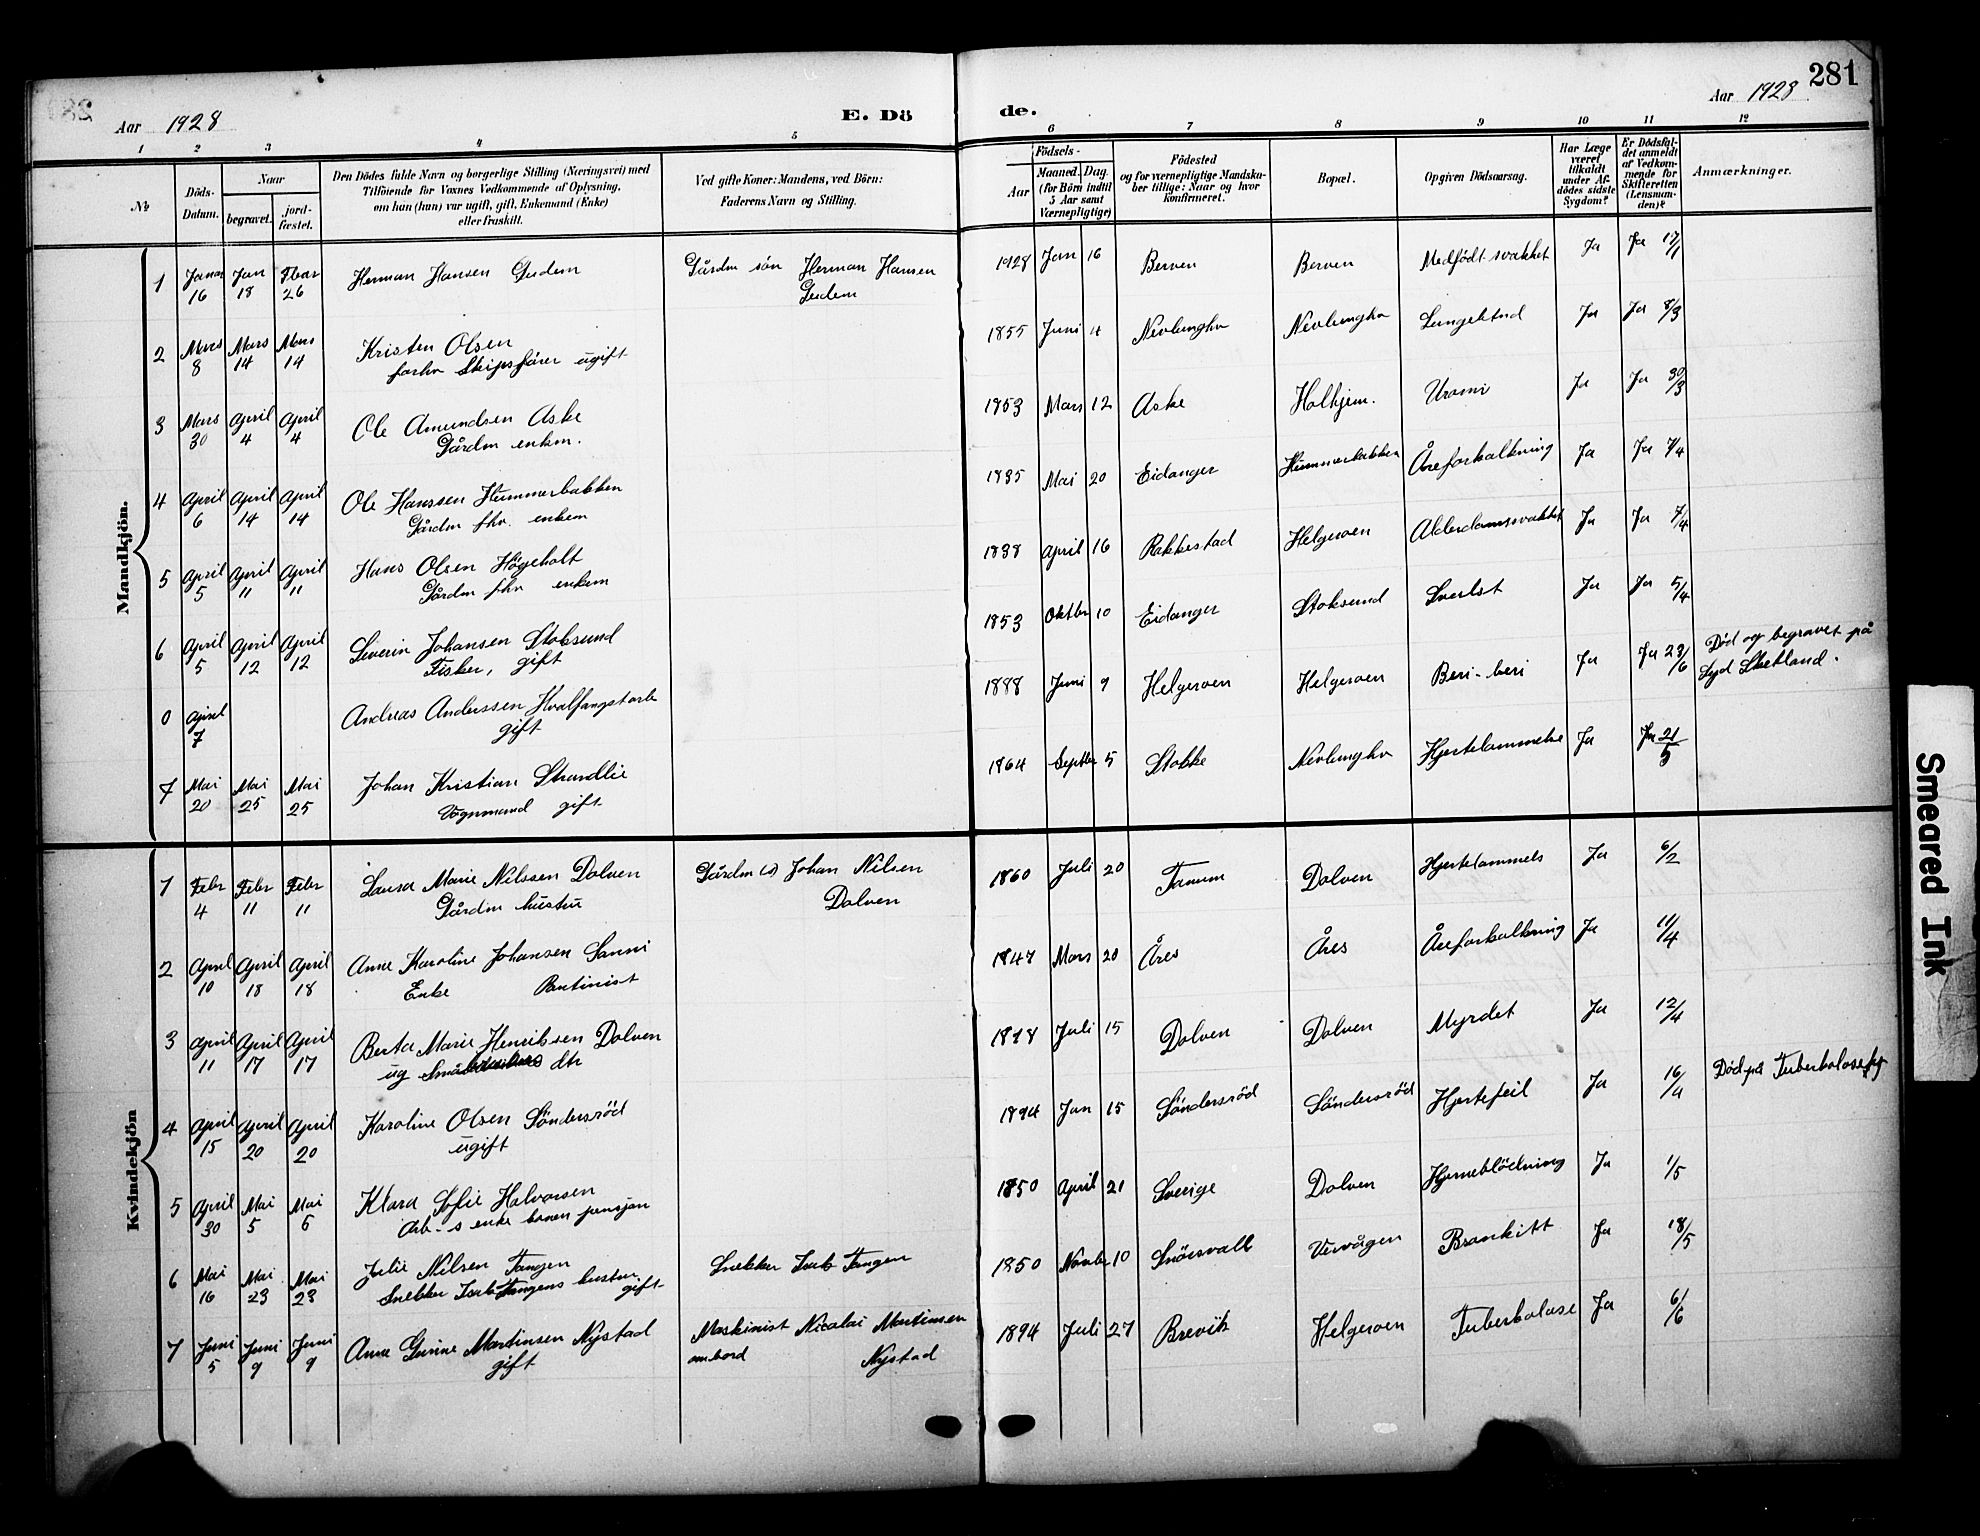 281
Aar 1928
E. Dö
de.
Aar 1928
1 2 3 4 5 6 7 8 9 10 11 12
No
Döds-
Datum.
Naar
begravet.
jord-
fæstet.
Den Dödes fulde Navn og borgerlige Stilling (Næringsvei) med
Tilföiende for Voxnes Vedkommende af Oplysning,
om han (hun) var ugift, gift, Enkemand (Enke)
eller fraskilt.
Ved gifte Koner: Mandens, ved Börn:
Faderens Navn og Stilling.
Födsels-
Aar
Maaned. Dag.
(for Börn indtil
5 Aar samt
Værnepligtige)
Födested
og for værnepligtige Mandska-
ber tillige: Naar og hvor
konfirmeret.
Bopæl.
Opgiven Dödsaarsag.
Har Læge
været
tilkaldt
under Af-
dödes sidste
Sygdom?
Er Dödsfal-
det anmeldt
af Vedkom-
mende for
Skifteretten
(Lensman-
den)?
Anmærkninger.
Mandkjön.
1 Januar 16 Jan 18 Fbar 26 Herman Hansen Gudem Gårdm sön Herman Hansen 1928 Jan 16 Berven Berven Medfödt svakhet Ja Ja 17/1
Gudem
2 Mars 8 Mars 14 Mars 14 Kristen Olsen 1855 Juni 4 Nevlunghv Nevlunghv Ja Ja 8/3
forhv Skipsförer ugift
3 Mars 30 April 4 April 4 Ole Amundsen Aske 1853 Mars 12 Aske Holhjem. Uræmi Ja Ja 30/3
Gårdm enkm.
4 April 6 April 14 April 14 Ole Hanssen Hummerbakken 1835 Mai 20 Eidanger Hummerbakken Åreforkalkning Ja Ja 7/4
Gårdm fhv. enkem
5 April 5 April 11 April 11 Hans Olsen Högeholt 1838 April 16 Rakkestad Helgeroen Alderdomssvakhet Ja Ja 7/4
Gårdm fhv enkem
6 April 5 April 12 April 12 Severin Johansen Stoksund 1853 Oktbr 10 Eidanger Stoksund Ja Ja 5/4
Fisker, gift
0 April 7 Andreas Anderssen Hvalfangstarb 1888 Juni 9 Helgeroen Helgeroen Beri-beri Ja Ja 23/6 Död og begravet på
gift Syd Shetland.
7 Mai 20 Mai 25 Mai 25 Johan Kristian Strandlie 1864 Septbr 5 Stokke Nevlunghv Hjertelammelse Ja Ja 21/5
Vognmand gift
Kvindekjön
1 Febr 4 Febr 11 Febr 11 Laura Marie Nilssen Dolven Gårdm (s) Johan Nilsen 1860 Juli 20 Tanum Dolven Hjertelammels Ja 6/2
Gårdm hustru Dolven
2 April 10 April 18 April 18 Anne Karoline Johansen Sanni 1847 Mars 20 Åres Åres Åreforkalkning Ja 11/4
Enke
3 April 11 April 17 April 17 Berta Marie Henriksen Dolven 1898 Juli 15 Dolven Dolven Myrdet Ja 12/4
ug dtr
4 April 15 April 20 April 20 Karoline Olsen Söndersröd 1894 Jan 15 Söndersröd Söndersröd Hjertefeil Ja 16/4 Död på Tuberkulosehj
ugift
5 April 30 Mai 5 Mai 6 Klara Sofie Halvorsen 1850 April 21 Sverige Dolven Hjerneblödning Ja 1/5
Arb-s enke pensjon
6 Mai 16 Mai 23 Mai 23 Julie Nilsen Tangen Snekker Isak Tangen 1850 Novbr 10 Vervågen Bronkitt Ja 18/5
Snekker Isak Tangens hustru gift
7 Juni 5 Juni 9 Juni 9 Anna Gurine Martinsen Nystad Maskinist Nicolai Martinsen 1894 Juli 27 Brevik Helgeroen Tuberkulose Ja 6/6
gift ombord Nystad
Smeared Ink